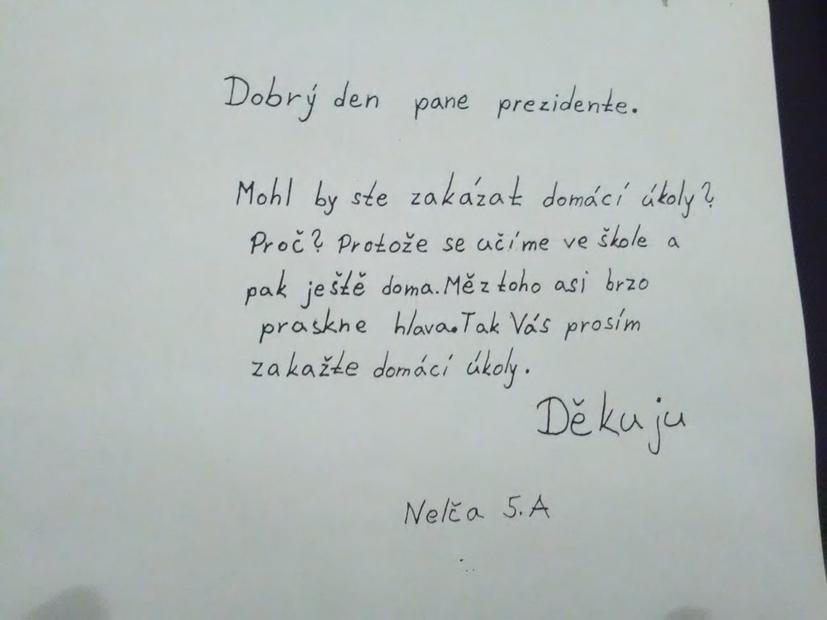 Dobrý den pane prezidente.
Mohl by ste zakázat domácí úkoly?
Proč? Protože se učíme ve škole a
pak ještě doma. Mě z toho asi brzo
praskne hlava. Tak Vás prosím
zakažte domácí úkoly.
Děkuju
Nelča 5.A